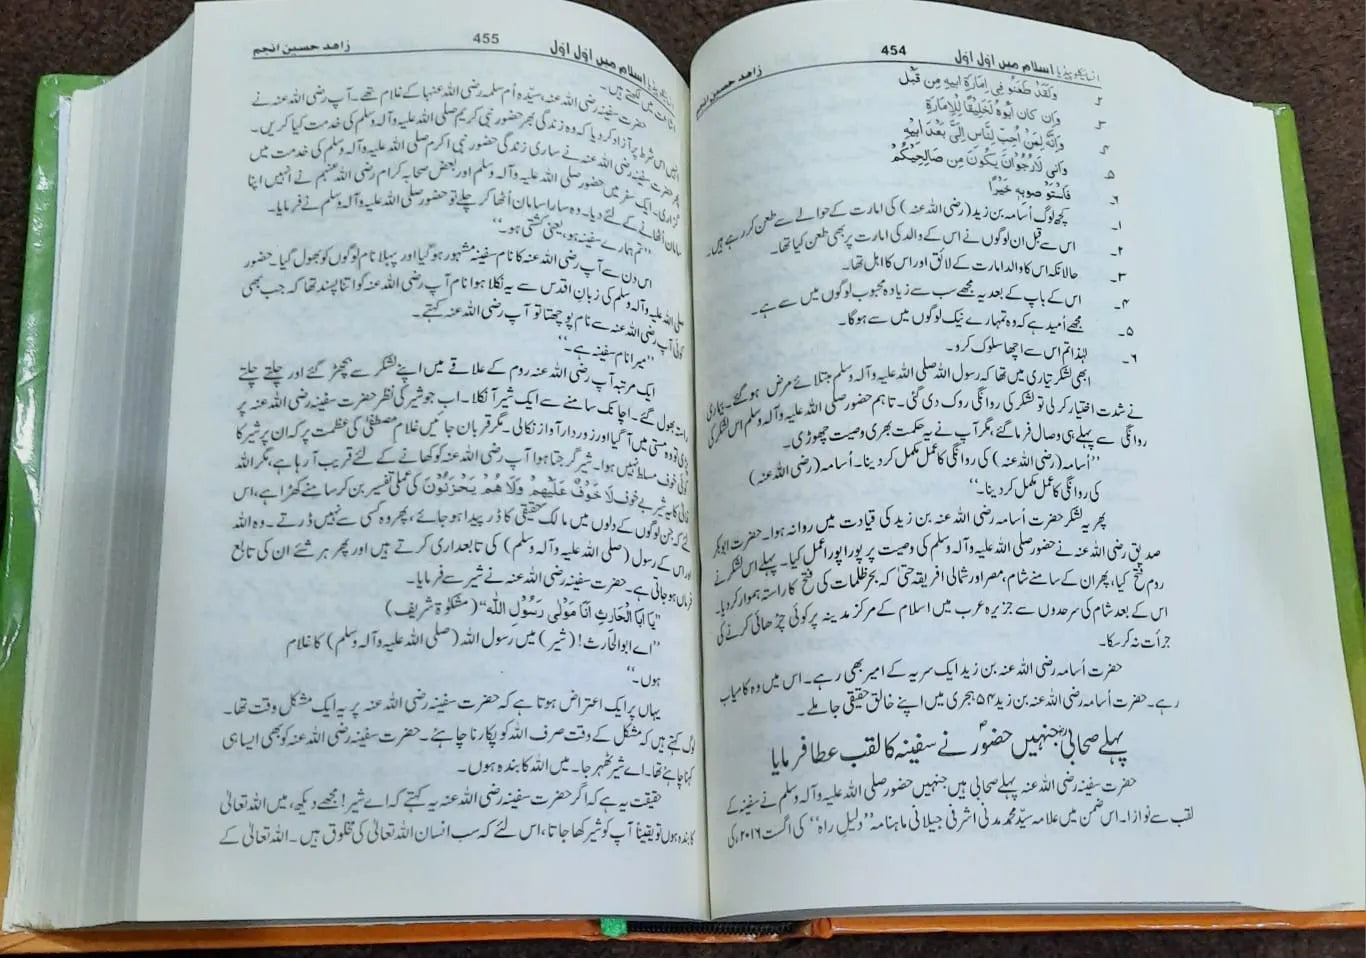 انسائیکلوپیڈیا اسلام میں اوّل اوّل 454 زاہد حسین انجم
۲ وَلَقَدْ طَعَنُو فِی اِمَارَۃِ ابِیہِ مِن قَبْل
۳ وَاِن کان ابُوہُ لَخَلِیْقًا لِلاِمَارَۃِ
۴ وَاِنَّہُ لِمَنْ اَحِبّ لنَّاسِ اِلَیَّ بَعْدَ ابِیْہِ
۵ وَانِی لَارْجُوْ اَنْ یَکُونَ مِن صَالِحِیْکُمْ
۶ فَاسْتَوْ صوبِہٖ خَیْرًا
۱۔ کچھ لوگ اُسامہ بن زید (رضی اللہ عنہ) کی امارت کے حوالے سے طعن کر رہے ہیں۔
۲۔ اس سے قبل ان لوگوں نے اس کے والد کی امارت پر بھی طعن کیا تھا۔
۳۔ حالانکہ اس کا والد امارت کے لائق اور اس کا اہل تھا۔
۴۔ اس کے باپ کے بعد یہ مجھے سب سے زیادہ محبوب لوگوں میں سے ہے۔
۵۔ مجھے اُمید ہے کہ وہ تمہارے نیک لوگوں میں سے ہوگا۔
۶۔ لہٰذا تم اس سے اچھا سلوک کرو۔
ابھی لشکر تیاری میں تھا کہ رسول اللہ صلی اللہ علیہ وآلہ وسلم مبتلائے مرض ہو گئے۔ بیماری
نے شدت اختیار کر لی تو لشکر کی روانگی روک دی گئی۔ تاہم حضور صلی اللہ علیہ وآلہ وسلم اس لشکر کی
روانگی سے پہلے ہی وصال فرما گئے، مگر آپ نے یہ حکمت بھری وصیت چھوڑی۔
”اُسامہ (رضی اللہ عنہ) کی روانگی کا عمل مکمل کر دینا۔ اُسامہ (رضی اللہ عنہ)
کی روانگی کا عمل مکمل کر دینا۔“
پھر یہ لشکر حضرت اُسامہ رضی اللہ عنہ بن زید کی قیادت میں روانہ ہوا۔ حضرت ابوبکر
صدیق رضی اللہ عنہ نے حضور صلی اللہ علیہ وآلہ وسلم کی وصیت پر پورا پورا عمل کیا۔ پہلے اس لشکر نے
روم فتح کیا، پھر ان کے سامنے شام، مصر اور شمالی افریقہ حتیٰ کہ بحر ظلمات کی فتح کا راستہ ہموار کر دیا۔
اس کے بعد شام کی سرحدوں سے جزیرہ عرب میں اسلام کے مرکز مدینہ پر کوئی چڑھائی کرنے کی
جرأت نہ کر سکا۔
حضرت اُسامہ رضی اللہ عنہ بن زید ایک سریہ کے امیر بھی رہے۔ اس میں وہ کامیاب
رہے۔ حضرت اُسامہ رضی اللہ عنہ بن زید ۵۴ ہجری میں اپنے خالق حقیقی جا ملے۔
پہلے صحابیؓ جنہیں حضورؐ نے سفینہ کا لقب عطا فرمایا
حضرت سفینہ رضی اللہ عنہ پہلے صحابی ہیں جنہیں حضور صلی اللہ علیہ وآلہ وسلم نے سفینہ کے
لقب سے نوازا۔ اس ضمن میں علامہ سیّد محمد مدنی اشرفی جیلانی ماہنامہ ”دلیلِ راہ“ کی اگست ۲۰۱۶ء کی
انسائیکلوپیڈیا اسلام میں اوّل اوّل 455 زاہد حسین انجم
اشاعت میں لکھتے ہیں۔
حضرت سفینہ رضی اللہ عنہ، سیّدہ اُم سلمہ رضی اللہ عنہا کے غلام تھے۔ آپ رضی اللہ عنہ نے
انہیں اس شرط پر آزاد کر دیا کہ وہ زندگی بھر حضور نبی کریم صلی اللہ علیہ وآلہ وسلم کی خدمت کیا کریں۔
پھر حضرت سفینہ رضی اللہ عنہ نے ساری زندگی حضور نبی اکرم صلی اللہ علیہ وآلہ وسلم کی خدمت میں
گزاری۔ ایک سفر میں حضور صلی اللہ علیہ وآلہ وسلم اور بعض صحابہ کرام رضی اللہ عنہم نے انہیں اپنا
سامان اُٹھانے کے لئے دیا۔ وہ سارا سامان اُٹھا کر چلے تو حضور صلی اللہ علیہ وآلہ وسلم نے فرمایا۔
”تم ہمارے سفینہ ہو، یعنی کشتی ہو۔“
اس دن سے آپ رضی اللہ عنہ کا نام سفینہ مشہور ہو گیا اور پہلا نام لوگوں کو بھول گیا۔ حضور
صلی اللہ علیہ وآلہ وسلم کی زبانِ اقدس سے یہ نکلا ہوا نام آپ رضی اللہ عنہ کو اتنا پسند تھا کہ جب بھی
کوئی آپ رضی اللہ عنہ سے نام پوچھتا تو آپ رضی اللہ عنہ کہتے۔
”میرا نام سفینہ ہے۔“
ایک مرتبہ آپ رضی اللہ عنہ روم کے علاقے میں اپنے لشکر سے بچھڑ گئے اور چلتے چلتے
راستہ بھول گئے۔ اچانک سامنے سے ایک شیر آ نکلا۔ اب جو شیر کی نظر حضرت سفینہ رضی اللہ عنہ پر
پڑی تو وہ مستی میں آ گیا اور زور دار آواز نکالی۔ مگر قربان جائیں غلامِ مصطفیٰ کی عظمت پر کہ ان پر شیر کا
کوئی خوف مسلط نہیں ہوا۔ شیر گرجتا ہوا آپ رضی اللہ عنہ کو کھانے کے لئے قریب آ رہا ہے، مگر اللہ
تعالیٰ کا یہ شیر بے خوف لَا خَوْفٌ عَلَیْہِمْ وَلَا ھُمْ یَحْزَنُوْنَ کی عملی تفسیر بن کر سامنے کھڑا ہے، اس
لئے کہ جن لوگوں کے دلوں میں مالک حقیقی کا ڈر پیدا ہو جائے، پھر وہ کسی سے نہیں ڈرتے۔ وہ اللہ
اور اس کے رسول (صلی اللہ علیہ وآلہ وسلم) کی تابعداری کرتے ہیں اور پھر ہر شئے ان کی تابع
فرماں ہو جاتی ہے۔ حضرت سفینہ رضی اللہ عنہ نے شیر سے فرمایا۔
”یَا اَبَا الْحَارِثِ اَنَا مَوْلٰی رَسُوْلِ اللّٰہ“ (مشکوٰۃ شریف)
”اے ابوالحارث! (شیر) میں رسول اللہ (صلی اللہ علیہ وآلہ وسلم) کا غلام
ہوں۔“
یہاں پر ایک اعتراض ہوتا ہے کہ حضرت سفینہ رضی اللہ عنہ پر یہ ایک مشکل وقت تھا۔
لوگ کہتے ہیں کہ مشکل کے وقت صرف اللہ کو پکارنا چاہئے۔ حضرت سفینہ رضی اللہ عنہ کو بھی ایسا ہی
کہنا چاہئے تھا۔ اے شیر ٹھہر جا۔ میں اللہ کا بندہ ہوں۔
حقیقت یہ ہے کہ اگر حضرت سفینہ رضی اللہ عنہ یہ کہتے کہ اے شیر! مجھے دیکھ، میں اللہ تعالیٰ
کا بندہ ہوں تو یقیناً آپ کو شیر کھا جاتا، اس لئے کہ سب انسان اللہ تعالیٰ کی مخلوق ہیں۔ اللہ تعالیٰ کے